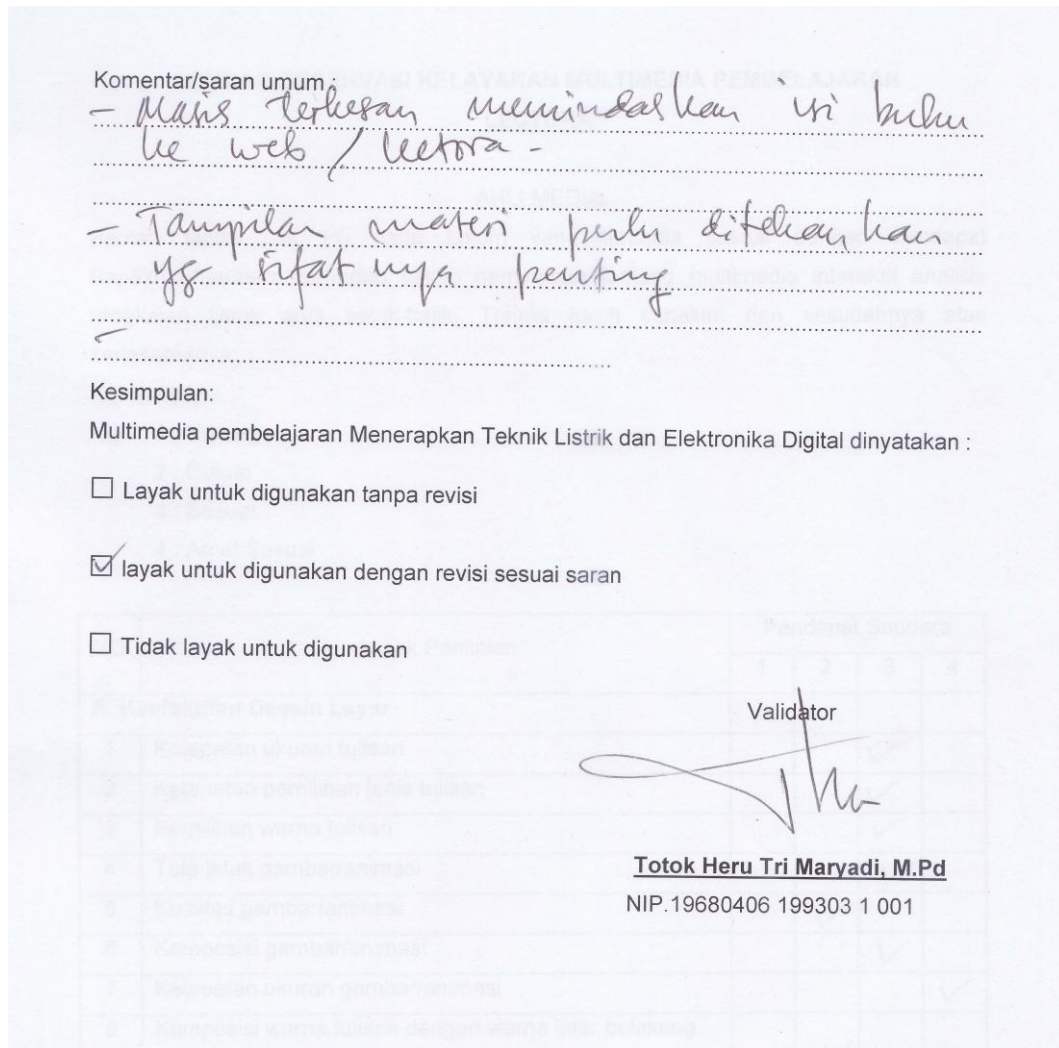 Komentar/saran umum :
- Masis terkesan memindahkan isi buku
ke web /
- Tampilan materi perlu ditekankan
yg sifatnya penting
-
Kesimpulan:
Multimedia pembelajaran Menerapkan Teknik Listrik dan Elektronika Digital dinyatakan :
Layak untuk digunakan tanpa revisi
layak untuk digunakan dengan revisi sesuai saran
Tidak layak untuk digunakan
Validator
Totok Heru Tri Maryadi, M.Pd
NIP.19680406 199303 1 001